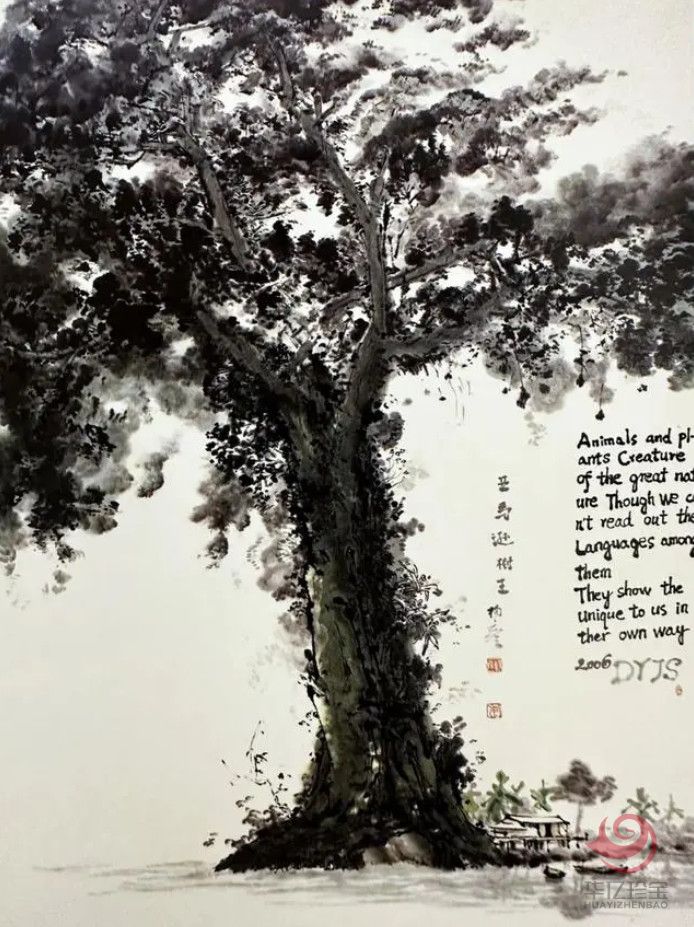 亚马逊树王
Animals and pl-
ants Creature
of the great nat
ure Though we c
n't read out the
Languages among
them
They show the
unique to us in
ther own way
2006 DYJS
HUAYIZHENBAO